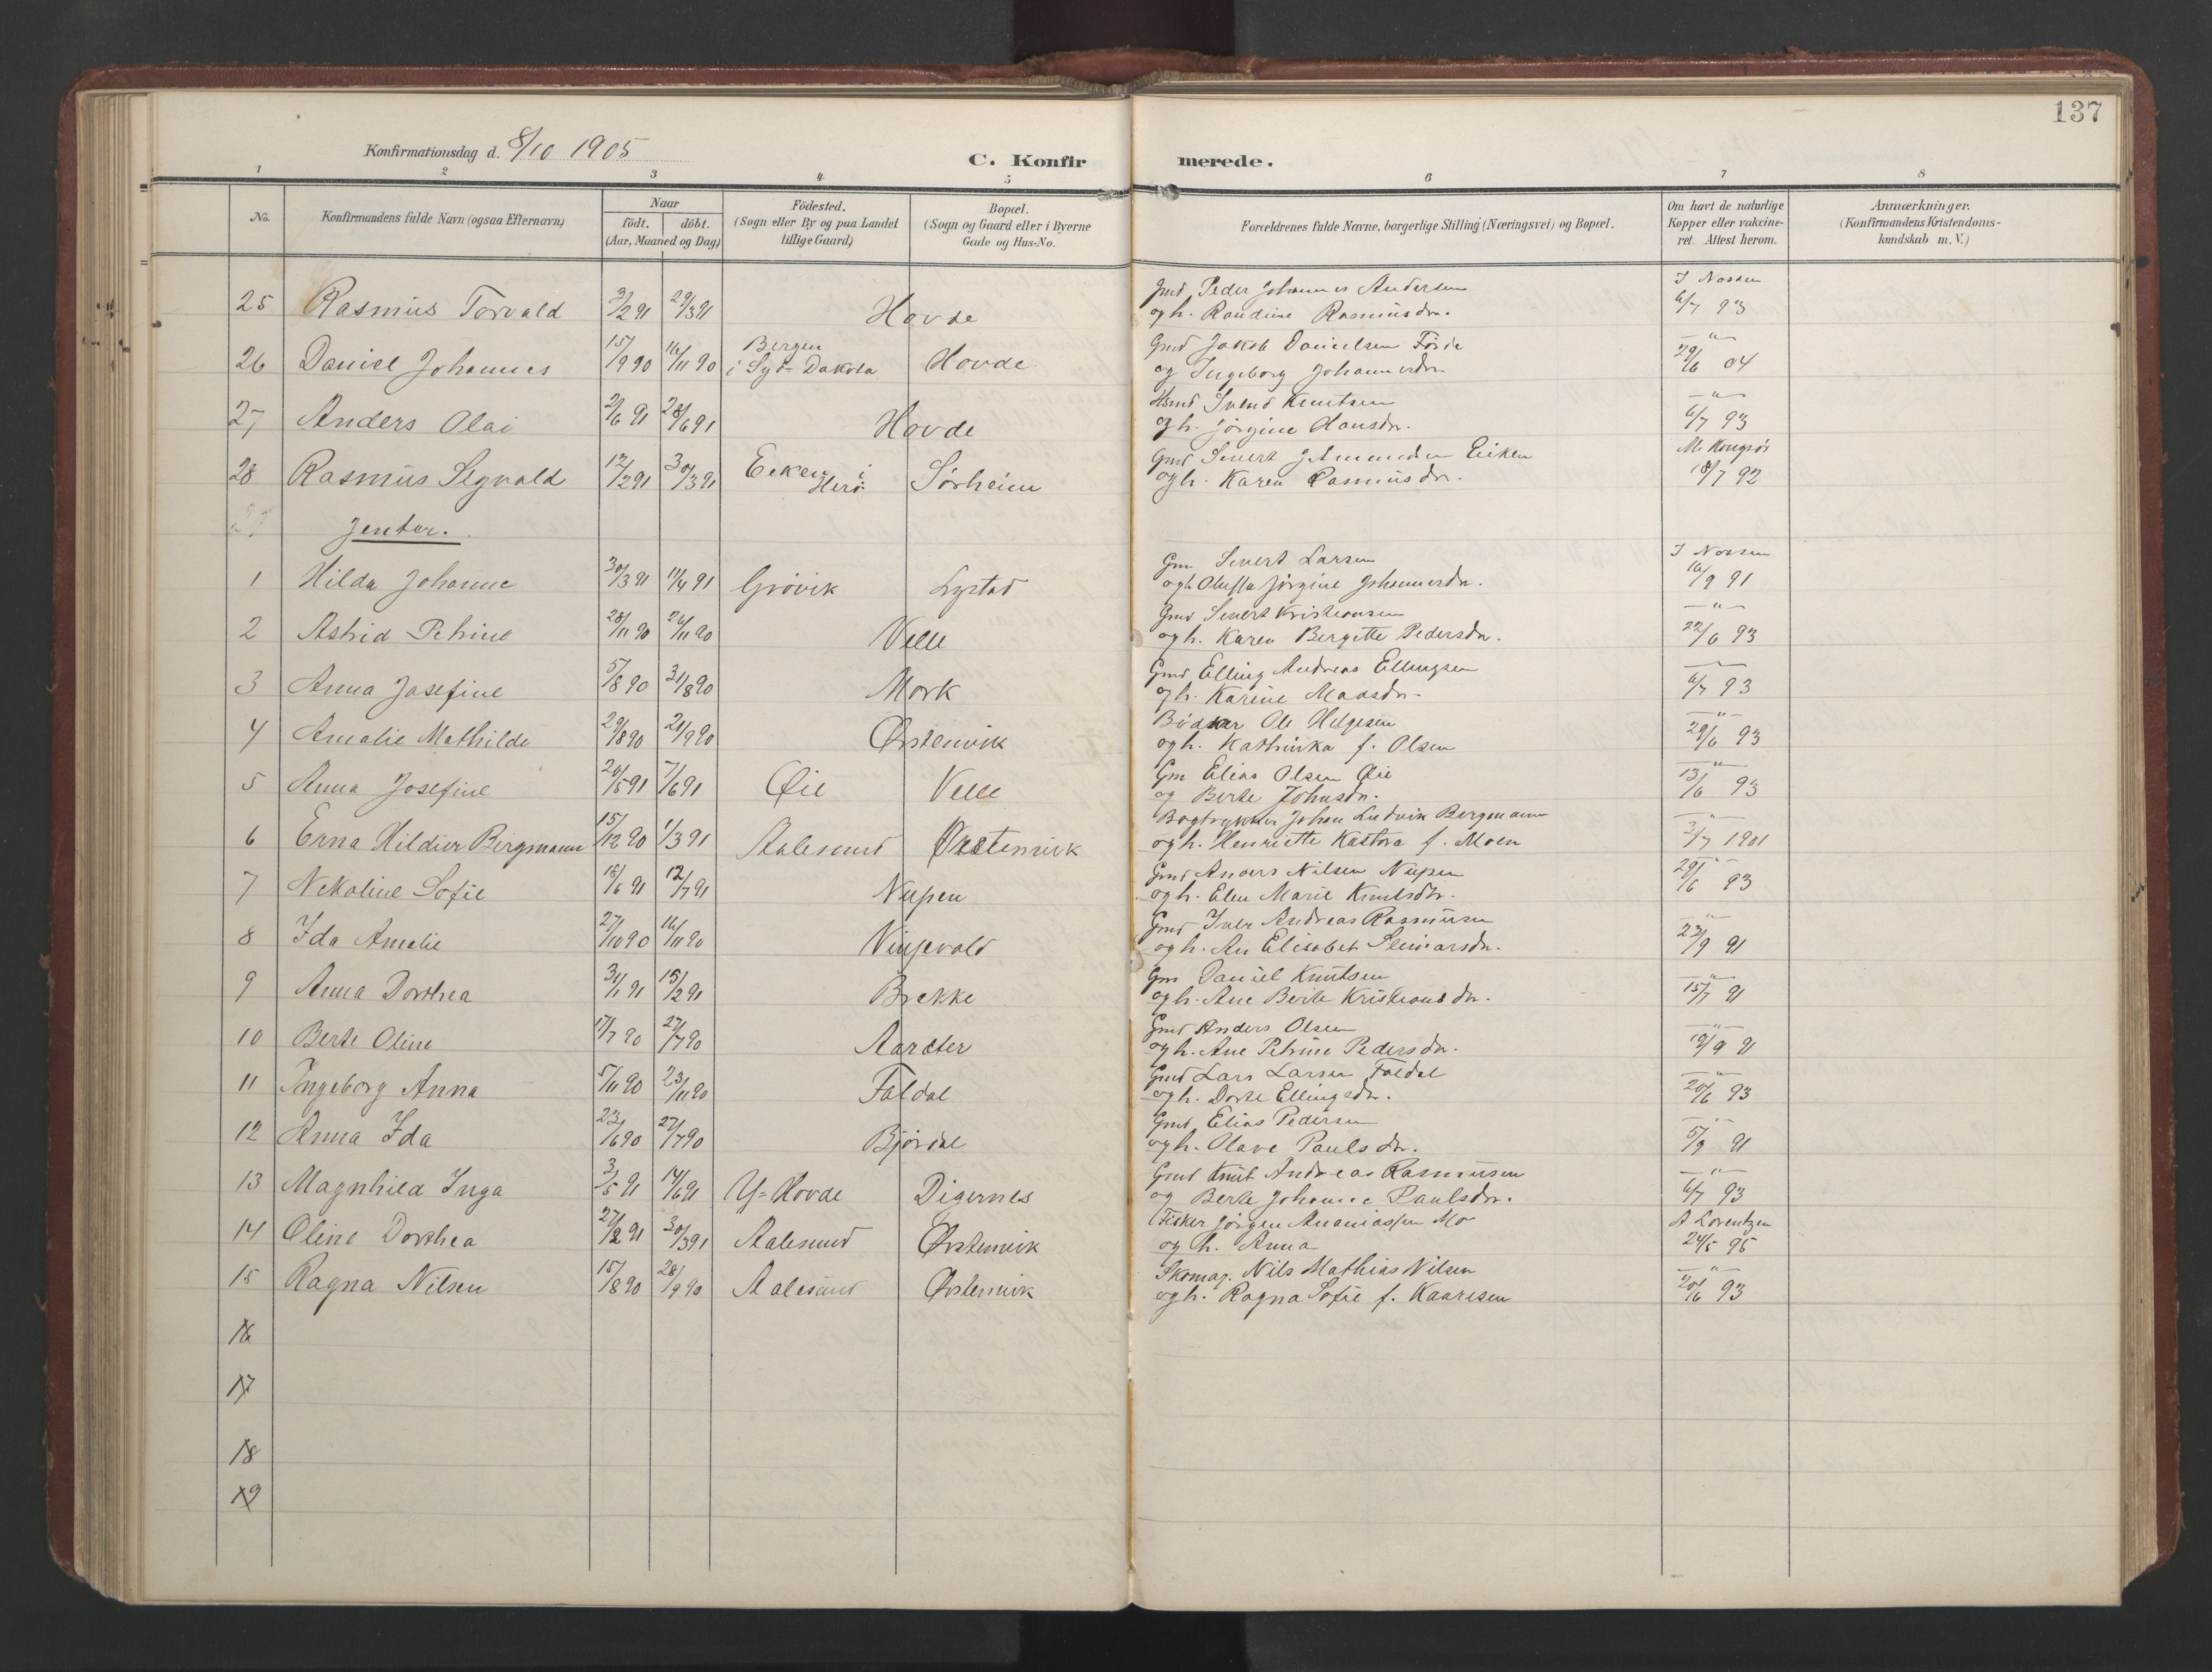 137
Konfirmationsdag d. 8/10 1905
C. Konfir merede.
1 2 3 4 5 6 7 8
No.
Konfirmandens fulde Navn (ogsaa Efternavn)
Naar
født. døbt.
(Aar, Maaned og Dag)
Fødested.
(Sogn eller By og paa Landet
tillige Gaard)
Bopæl.
(Sogn og Gaard eller i Byerne
Gade og Hus-No.
Forældrenes fulde Navne, borgerlige Stilling (Næringsvei) og Bopæl.
Om havt de naturlige
Kopper eller vakcine-
ret. Attest herom.
Anmærkninger.
(Konfirmandens Kristendoms-
kundskab m. V.)
25 Rasmus Torvald 3/2 91 29/3 91 Hovde Gmd Peder Johannes Andersen J Nossen
og h. Randine Rasmusdr. 6/7 93
26 Daniel Johannes 15/9 90 16/11 90 Bergen i Syd-Dakota Hovde Gmd Jakob Danielsen Förde "
og Ingeborg Johannesdr 29/6 04
27 Anders Olai 2/6 91 28/6 91 Hovde Hsmd Svend Knutsen "
og h. Jørgine Hansdr. 6/7 93
28 Rasmus Sigvald 12/2 91 30/3 91 Eeken i Herø Sørheim Gmd Sivert Eiken
og h. Karen Rasmusdr. 18/7 92
Jenter.
1 Hilda Johanne 30/3 91 11/4 91 Grövik Lystad Gm Sivert Larsen J Nossen
og h Oluffa Jørgine Johannesdr. 16/9 91
2 Astrid Petrine 26/11 90 Velle Gmd Sivert Kristiansen "
og h. Karen Bergitte Pedersdr. 22/6 93
3 Anna Josefine 5/8 90 31/8 90 Mork Gmd Elling Andreas Ellingsen "
og h. Karine Madsdr. 6/7 93
4 Amalie Mathilde 29/8 90 21/9 90 Ørstenvik Bødker Ole Helgesen "
og h. Kathinka f. Olsen 29/6 93
5 Anna Josefine 20/5 91 7/6 91 Øie Velle Gm Elias Olsen Øie "
og Berte Johnsdr. 13/6 93
6 Erna Hildur Bergmann 15/12 90 1/3 91 Aalesund Ørstenvik Bogtrykker Johan Ludvik Bergmann "
og h. Henriette Kastora f. Moen 3/7 1901
7 Nekoline Sofie 18/6 91 12/7 91 Nupen Gmd Anders Nilsen Nupen "
og h. Elen Marie Knutsdr. 29/6 93
8 Ida Amalie 27/10 90 16/11 90 Vinjevold Gmd Iver Andreas Rasmusen "
og h. An Elisabet Steinarsdr. 23/9 91
9 Anna Dorthea 31/1 91 15/2 91 Brekke Gm Daniel Knutsen "
og h. Ane Berte Kristiansdr. 15/7 91
10 Berte Oline 17/7 90 27/7 90 Aarseter Gmd Anders Olsen "
og h. Ane Petrine Pedersdr. 19/9 91
11 Ingeborg Anna 5/11 90 23/11 90 Foldal Gmd Lars Larsen Foldal "
og h. Dorte Ellingsdr. 20/6 93
12 Anna Ida 23/6 90 27/7 90 Bjørdal Gmd Elias Pedersen "
og h. Olave Paulsdr. 5/9 91
13 Magnhild Inga 3/5 91 14/6 91 Y-Hovde Digernes Gmd Knut Andreas Rasmusen "
og Berte Johanne Paulsdr. 6/7 93
14 Oline Dorthea 27/2 91 30/3 91 Aalesund Ørstenvik Fisker Jørgen Ananiassen Mo A Lorentzen
og h. Anna 24/5 95
15 Ragna Nilsen 15/8 90 28/9 90 Aalesund Ørstenvik Skomag. Nils Mathias Nilsen "
og h. Ragna Sofie f. Kaaresen 20/6 93
16
17
18
19